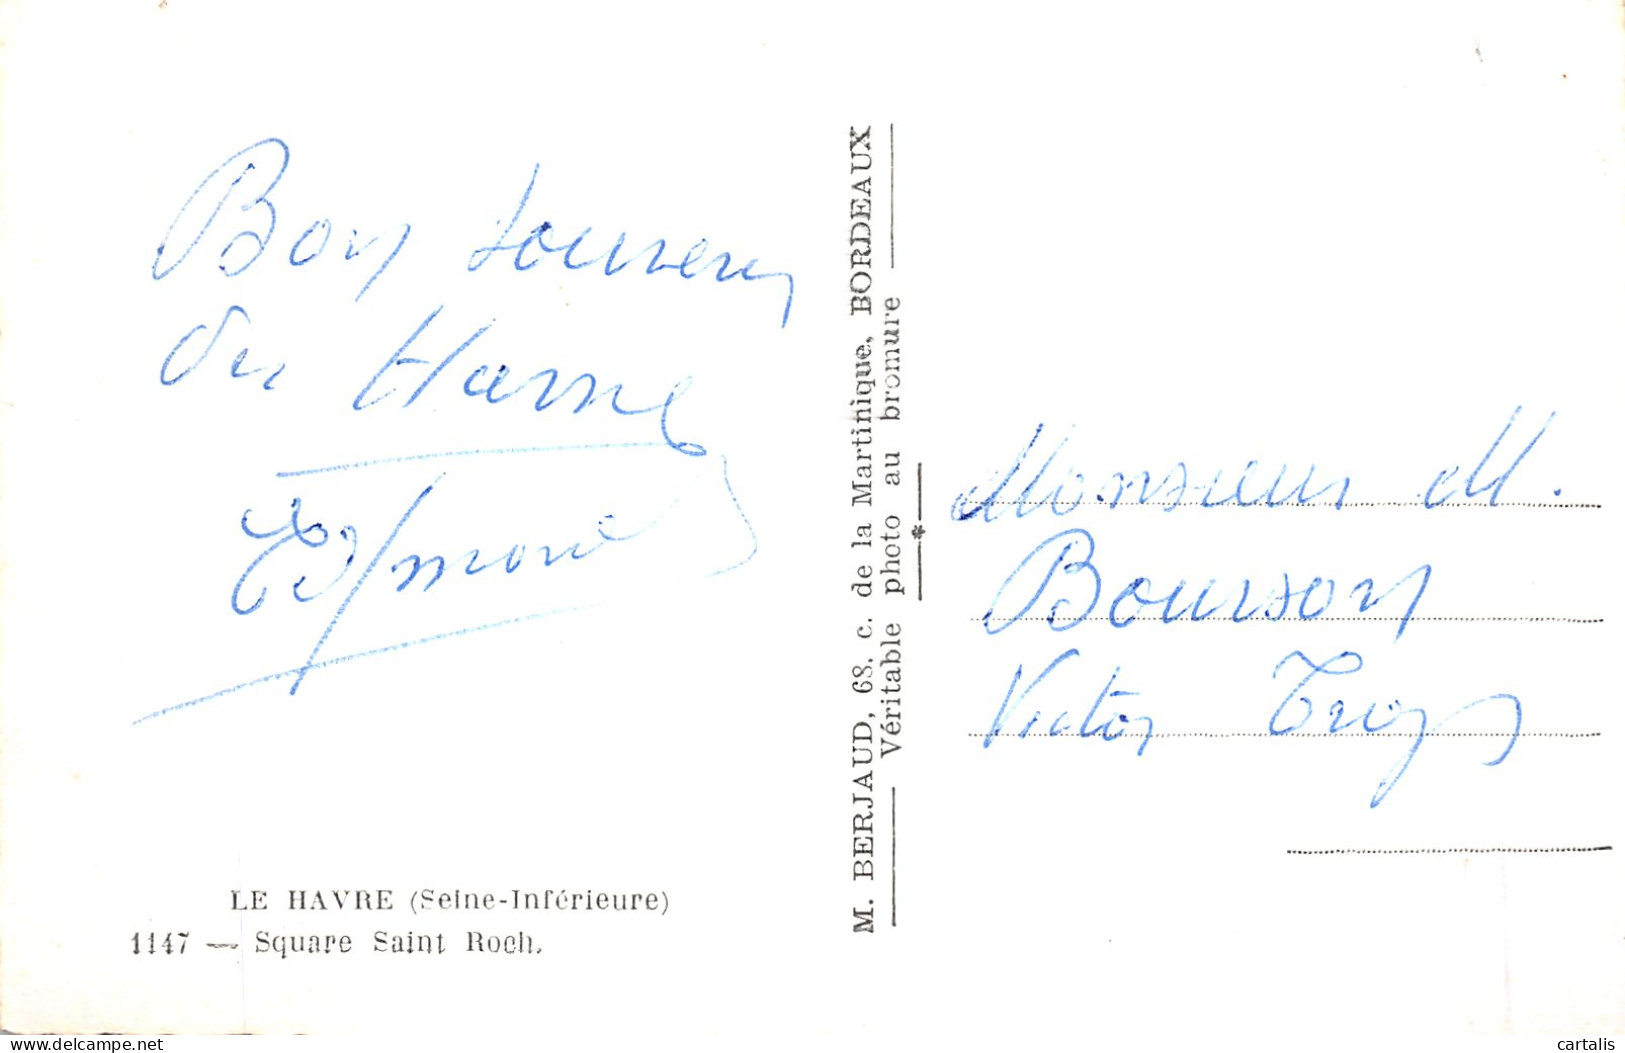 Bon souvenir
du Havre
LE HAVRE (Seine-Inférieure)
1147 — Square Saint Roch.
M. BERJAUD, 68. c. de la Martinique, BORDEAUX
Véritable photo au bromure
*
Monsieur M.
Bourson
Victor
cartalis
delcampe.net